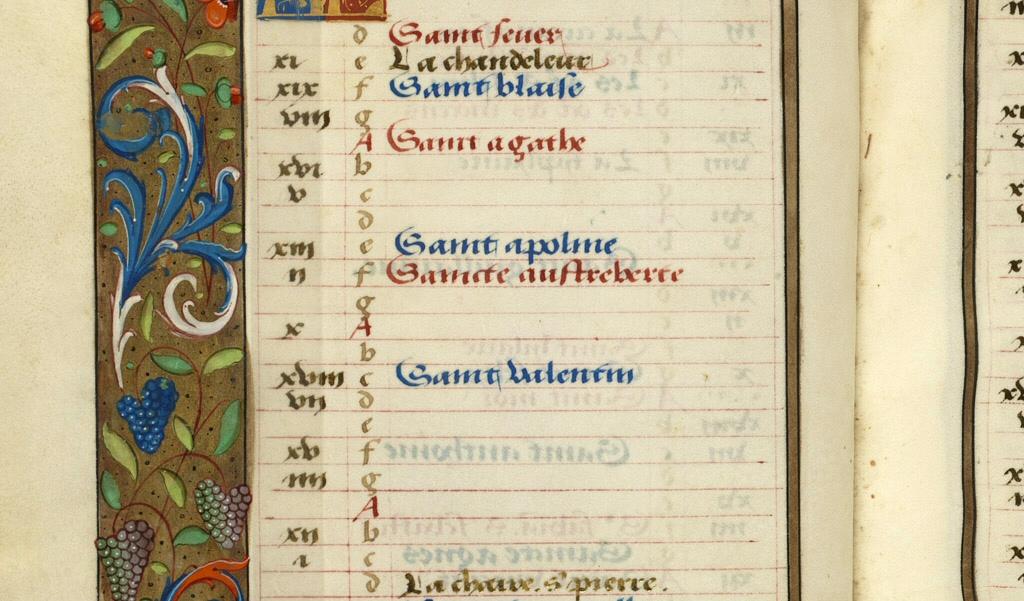 d Saint seuer
xi e La chandeleur
xix f Saint blaise
viii g
A Saint agathe
xvi b
v c
d
xiii e Saint apoline
ii f Saincte austreberte
g
x A
b
xviii c Saint Valentin
vii d
e
xv f
iiii g
A
xii b
i c
d La chaire. s. pierre.